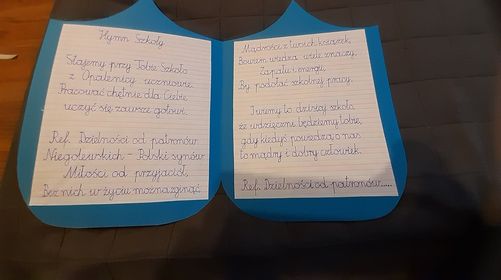 Hymn Szkoły
Stajemy przy Tobie Szkoło
z Opalenicy uczniowie.
Pracować chętnie dla Ciebie
uczyć się zawsze gotowi.
Ref. Dzielności od patronów
Niegolewskich - Polski synów
Miłości od przyjaciół,
Bez nich w życiu można zginąć
Mądrości z twoich książek,
Bowiem wiedza wiele znaczy.
Zapału i energii,
By podołać szkolnej pracy.
I wiemy to dzisiaj szkoło
że wdzięczni będziemy tobie,
gdy kiedyś powiedzą o nas
to mądry i dobry człowiek.
Ref. Dzielności od patronów.....